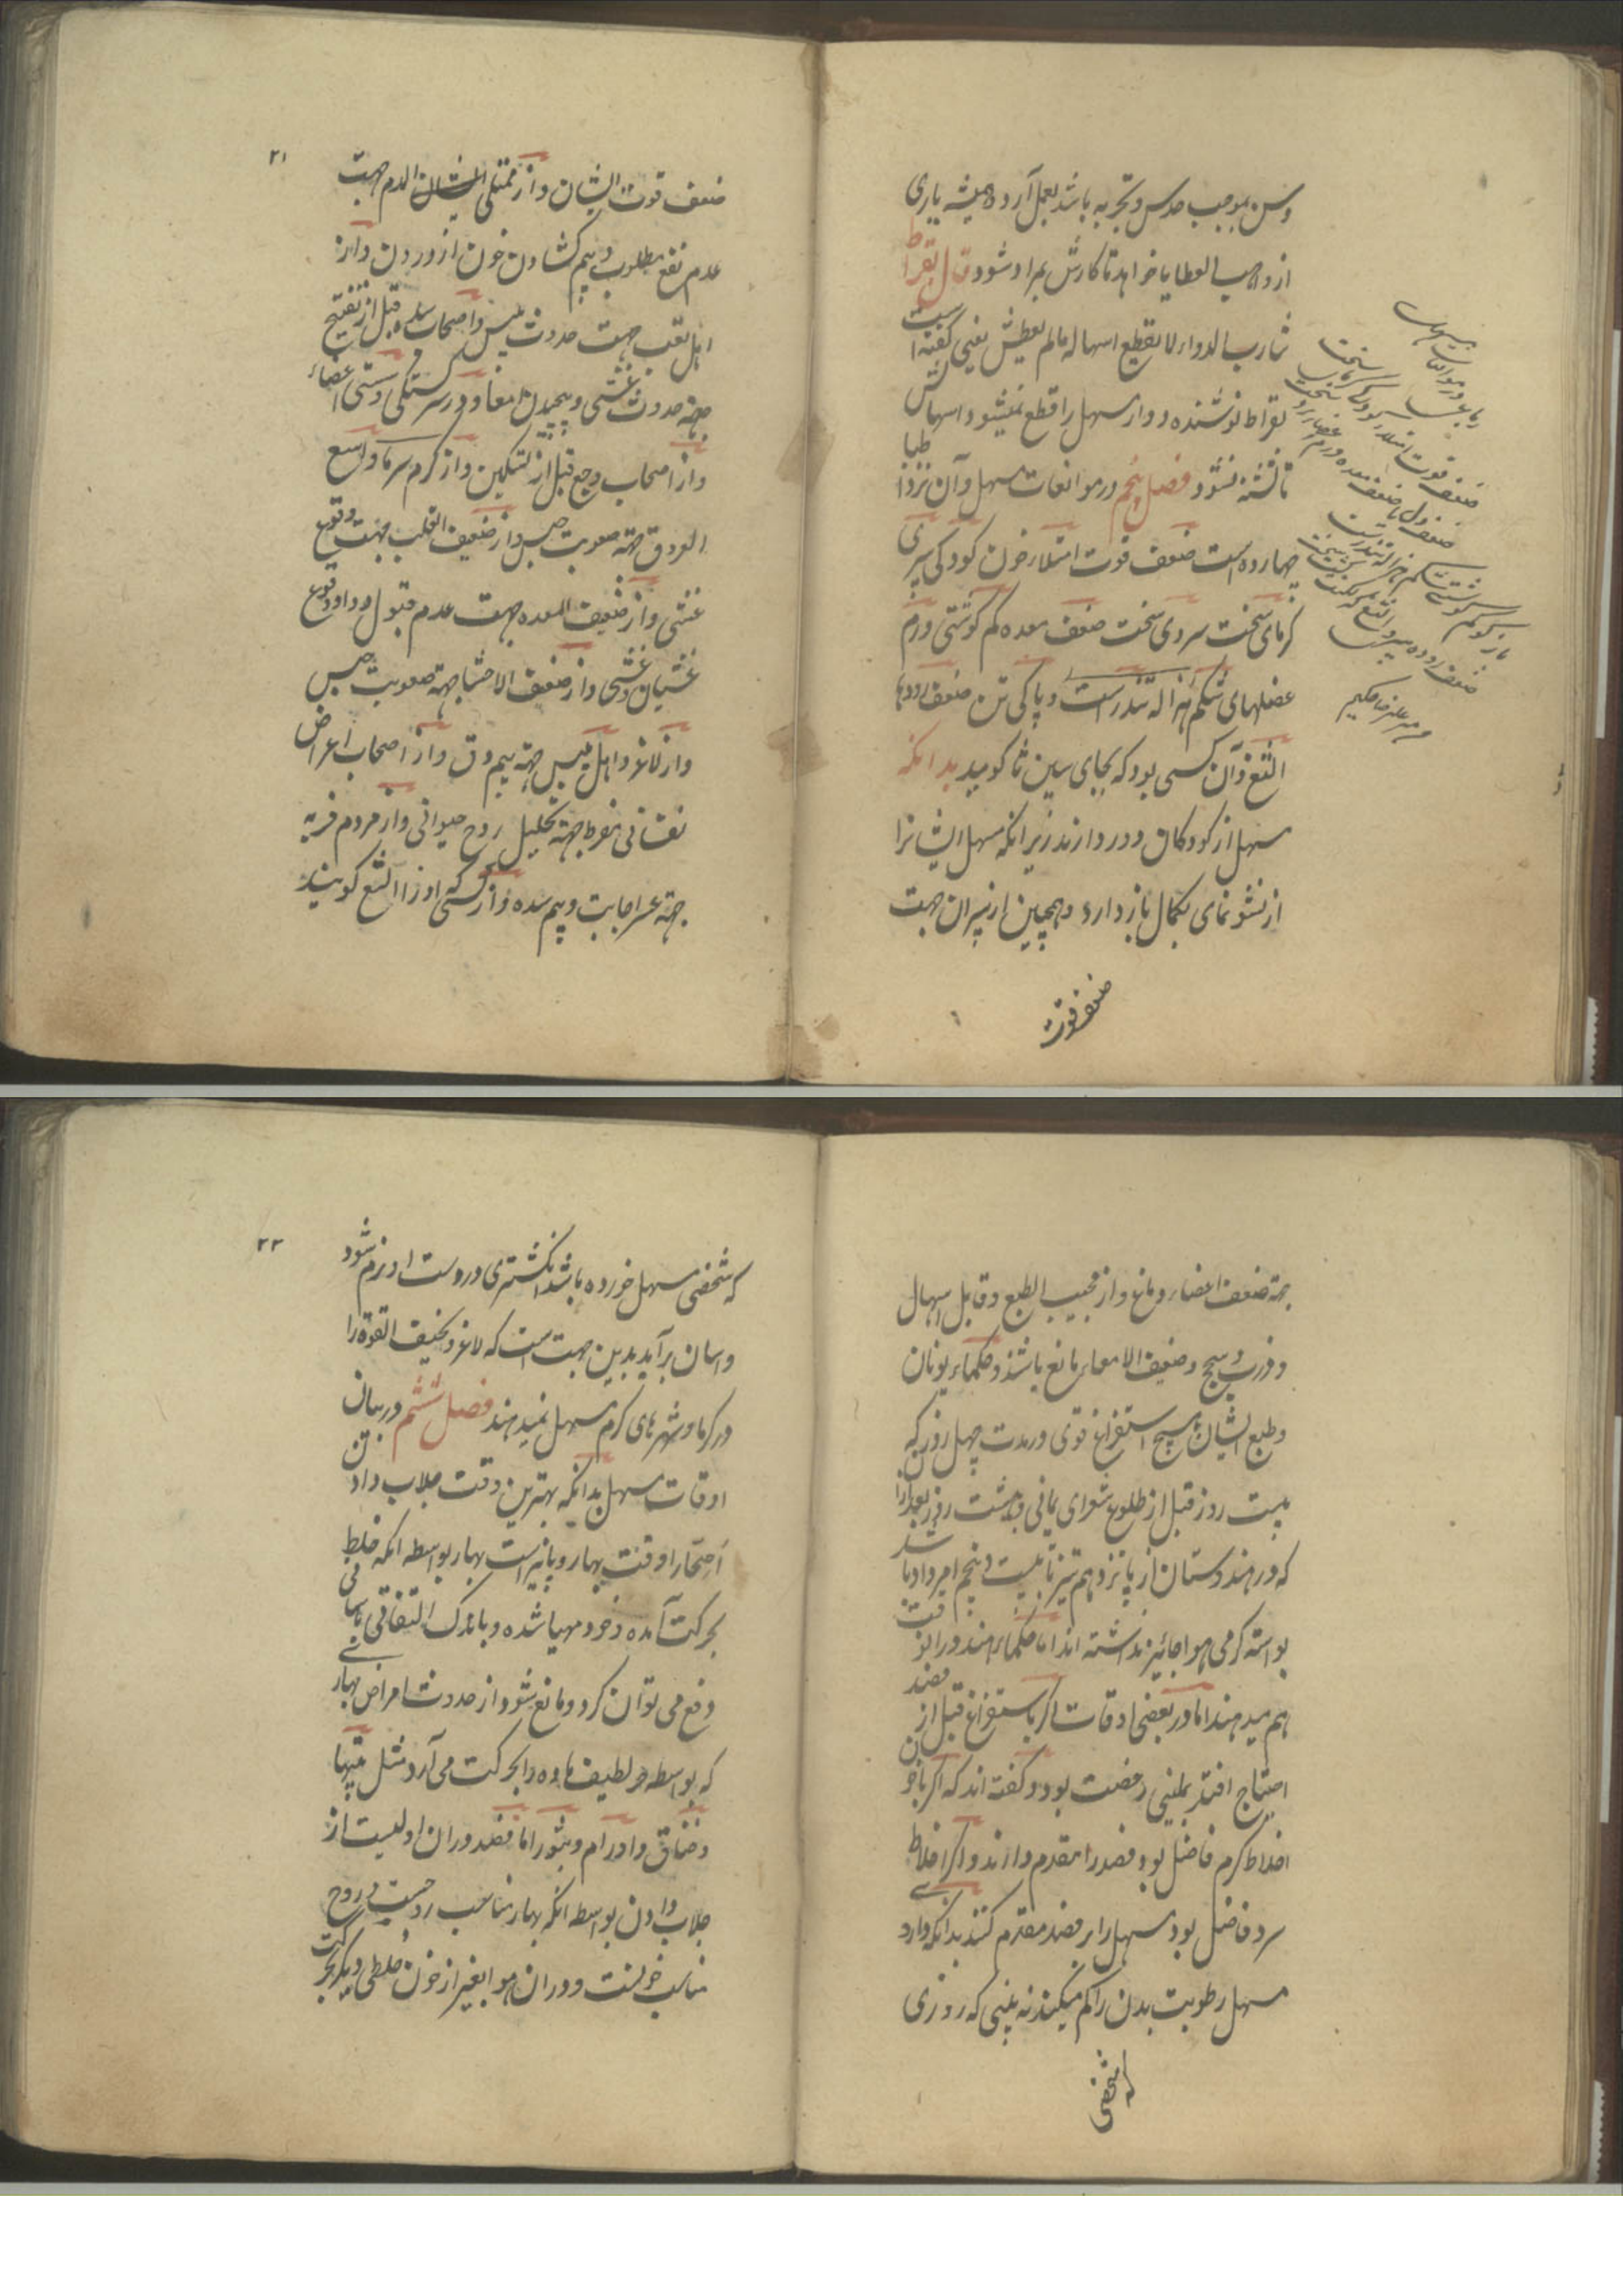 وسن بموجب حدس و تجربه باشد بعمل آرد و همیشه یاری
از واهب العطایا خواهد تا کارش بمراد شود قال بقراط
شارب الدواء لا یقطع اسهاله مالم یعطش یعنی گفته است
بقراط نوشنده دوار مسهل را قطع نمیشود اسهالش
تا تشنه نشود فصل پنجم در موانعات مسهل و آن نزد اطبا
چهارده است ضعف قوت امتلاء خون کودکی پیری
گرمای سخت سردی سخت ضعف معده کم گوشتی ورم
عضلهای شکم هزاله تندرست و پاکی تن ضعف رودها
التغ و آن کسی بود که بجای سین ثا گوید بدانکه
مسهل از کودکان دور دارند زیرا نکه مسهل ایشانرا
از نشو نمای بکمال باز دارد و همچنین از پیران جهت
ضعف قوت
۲۱
ضعف قوت ایشان و از ممتلی الدم جهت
عدم نفع مطلوب و بیم کشادن خون از وردن و از
اهل تعب جهت حدوث یبس و اصحاب سده قبل از تفتیح
جهة حدوث غشی و پیچیدن امعا و در سر گرسنگی و سستی اعضاء
و از اصحاب وجع قبل از تسکین و از گرم سرما واسع
العروق جهة صعوبت حبس و از ضعیف القلب بجهت وقوع
غشی و از ضعیف المعده جهت عدم قبول دوا و وقوع
غشیان و غشی و از ضعیف الاحشا جهة صعوبت حبس
و از لاغر و اهل یبس جهة بیم دق و از اصحاب اعراض
نفسانی مفرط جهة تحلیل روح حیوانی و از مردم فربه
جهة عسر اجابت و بیم سده و از کسی که او را التغ گویند
جهة ضعف اعضاء دماغ و از مجیب الطبع و قابل اسهال
و ذرب و سحج و ضعیف الامعاء مانع باشند و حکماء یونان
و طبع ایشان هیچ استفراغ قوی در مدت چهل روز که
بیست روز قبل از طلوع شعرای یمانی و بیست روز بعد از آن
که در هندوستان از پانزدهم تیر تا بیست و پنجم امرداد باشد
بواسته گرمی هوا جائز نداشته اند اما حکماء هند در انوقت
هم میدهند اما در بعضی اوقات اگر باستفراغ قبل از فصد
احتیاج افتد بملینی رخصت بود و گفته اند که اگر با خون
اخلاط گرم فاضل بود فصد را مقدم دارند و اگر اخلاط
سرد فاضل بود مسهل را بر فصد مقدم کنند بدانکه داروی
مسهل رطوبت بدن را کم میکند نه بینی که روزی
که شخصی
۲۲
که شخصی مسهل خورده باشد انکشتری در دست او نرم شود
و اسان برآید بدین جهت است که لاغر و نحیف القوة را
در گرما و شهرهای گرم مسهل نمیدهند فصل ششم در بیان
اوقات مسهل بدانکه بهترین وقت جلاب دادن
اصحا را وقت بهار و پائیز است بهار بواسطه انکه خلط
بحرکت آمده و خود مهیا شده و باندک التفاتی باسانی
دفع می توان کرد و مانع شود از حدوث امراض بهاری
که بواسطه حر لطیف ماده را بحرکت می آرد مثل تبها
و خناق و اورام و بثور اما فصد در ان اولیست از
جلاب دادن بواسطه انکه بهار مناسب روحست و روح
مناسب خونست و در ان هوا بغیر از خون خلطی دیگر بحرکت